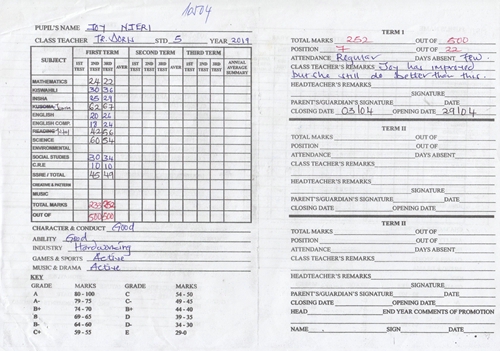 10504
PUPIL'S NAME JOY NJERI
CLASS TEACHER Tr. DORIS STD 5 YEAR 2019
SUBJECT FIRST TERM SECOND TERM THIRD TERM ANNUAL AVERAGE SUMMARY
1ST TEST 2ND TEST 3RD TEST AVER 1ST TEST 2ND TEST 3RD TEST AVER 1ST TEST 2ND TEST 3RD TEST
MATHEMATICS 24 22
KISWAHILI 30 36
INSHA 25 29
KUSOMA 62 67
ENGLISH 20 26
ENGLISH COMP. 18 24
READING 42 56
SCIENCE 60 54
ENVIRONMENTAL
SOCIAL STUDIES 30 34
C.R.E 10 10
SSRE / TOTAL 45 49
CREATIVE & PATTERN
MUSIC
TOTAL MARKS 252
OUT OF 500 500
CHARACTER & CONDUCT Good
ABILITY Good
INDUSTRY Hardworking
GAMES & SPORTS Active
MUSIC & DRAMA Active
KEY
GRADE MARKS GRADE MARKS
A 80 - 100 C 54 - 50
A- 79 - 75 C- 49 - 45
B+ 74 - 70 B+ 44 - 40
B 69 - 65 D 39 - 35
B- 64 - 60 D- 34 - 30
C+ 59 - 55 E 29-0
TERM I
TOTAL MARKS 252 OUT OF 500
POSITION 7 OUT OF 22
ATTENDANCE Regular DAYS ABSENT Few.
CLASS TEACHER'S REMARKS Joy has improved
but she still do better than this.
HEADTEACHER'S REMARKS
SIGNATURE
PARENT'S/GUARDIAN'S SIGNATURE DATE
CLOSING DATE 03/04 OPENING DATE 29/04
TERM II
TOTAL MARKS OUT OF
POSITION OUT OF
ATTENDANCE DAYS ABSENT
CLASS TEACHER'S REMARKS
HEADTEACHER'S REMARKS
SIGNATURE
PARENT'S/GUARDIAN'S SIGNATURE DATE
CLOSING DATE OPENING DATE
TERM II
TOTAL MARKS OUT OF
POSITION OUT OF
ATTENDANCE DAYS ABSENT
CLASS TEACHER'S REMARKS
HEADTEACHER'S REMARKS
SIGNATURE
PARENT'S/GUARDIAN'S SIGNATURE DATE
CLOSING DATE OPENING DATE
HEAD END YEAR COMMENTS OF PROMOTION
NAME SIGN DATE